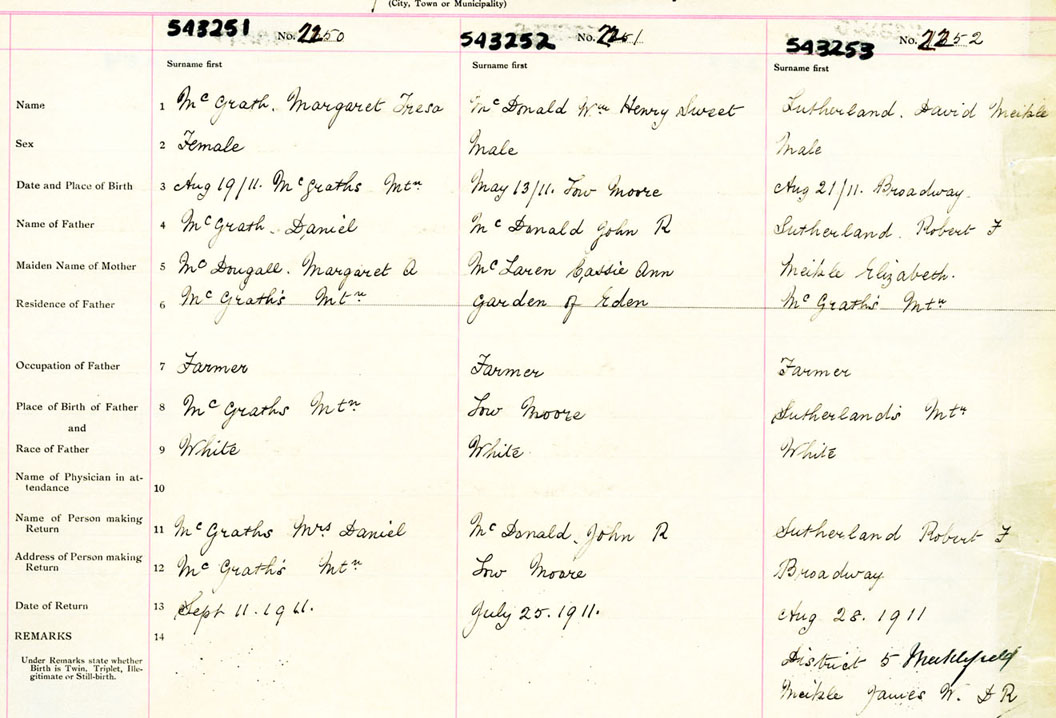 (City, Town or Municipality)
543251 No. 2250 543252 No. 2251 543253 No. 2252
Surname first Surname first Surname first
Name 1 McGrath. Margaret Tresa McDonald Wm Henry Sweet Sutherland. David Meikle
Sex 2 Female Male Male
Date and Place of Birth 3 Aug 19/11. McGraths Mtn May 13/11. Low Moore Aug 21/11. Broadway.
Name of Father 4 McGrath. Daniel McDonald John R Sutherland. Robert F
Maiden Name of Mother 5 McDougall. Margaret A McLaren Cassie Ann Meikle Elizabeth.
Residence of Father 6 McGrath's Mtn Garden of Eden McGrath's Mtn
Occupation of Father 7 Farmer Farmer Farmer
Place of Birth of Father 8 McGraths Mtn Low Moore Sutherland's Mtn
and
Race of Father 9 White White White
Name of Physician in at-
tendance 10
Name of Person making
Return 11 McGraths Mrs Daniel McDonald, John R Sutherland Robert F
Address of Person making
Return 12 McGrath's Mtn Low Moore Broadway
Date of Return 13 Sept 11. 1911. July 25. 1911. Aug 28. 1911
REMARKS 14
Under Remarks state whether
Birth is Twin, Triplet, Ille-
gitimate or Still-birth.
District 5
Meikle James W. D R